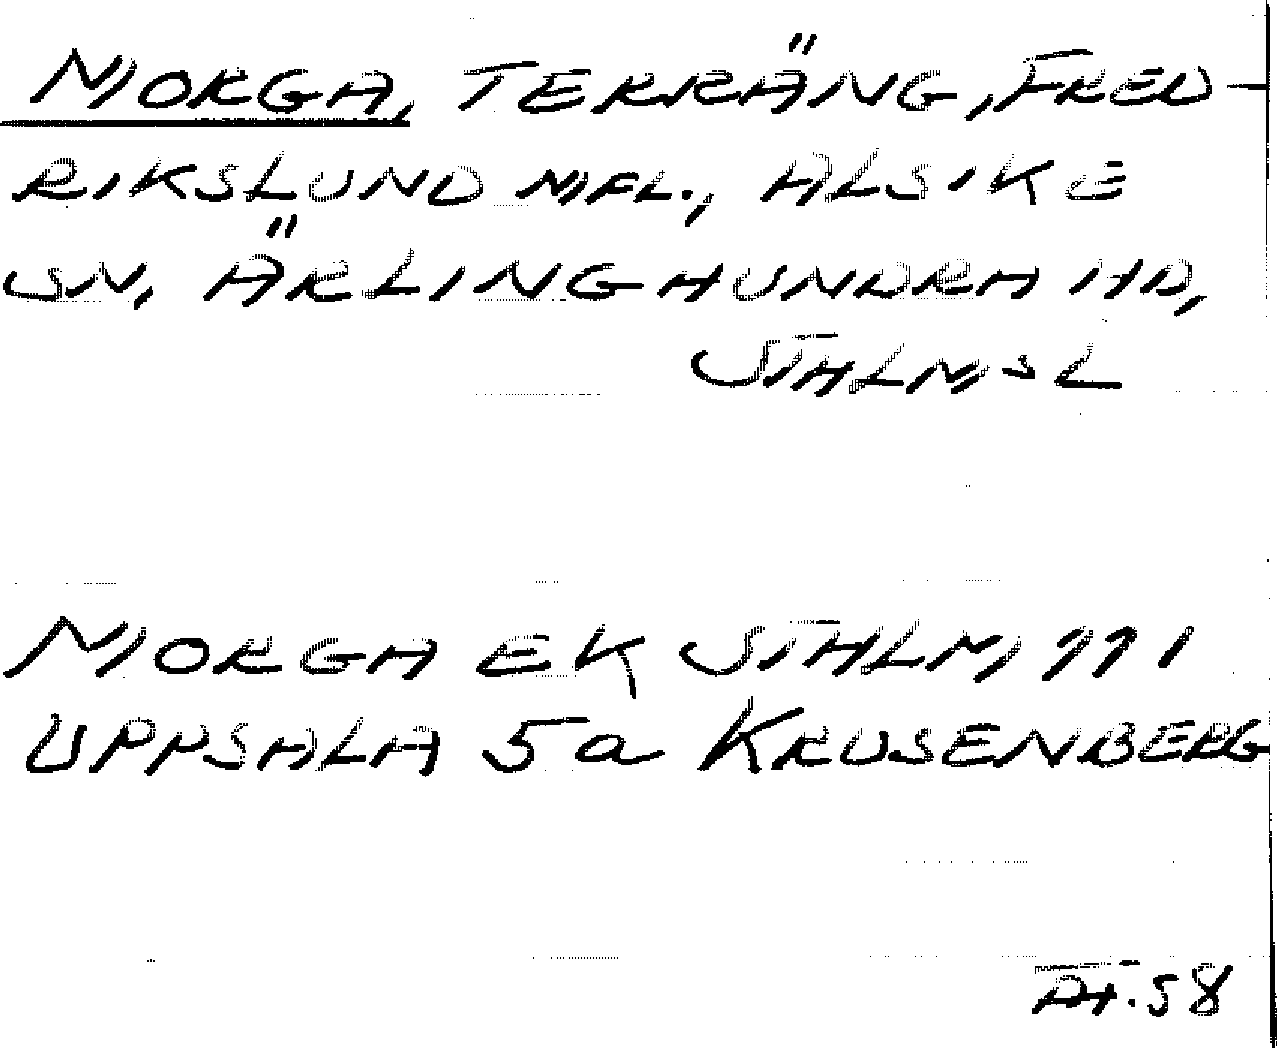 MORGA, TERRÄNG, FRED-
RIKSLUND MFL., ALSIKE
SN, ÄRLINGHUNDRA HD,
STHLMS L
MORGA EK STHLM 111
UPPSALA 5a KRUSENBERG
58